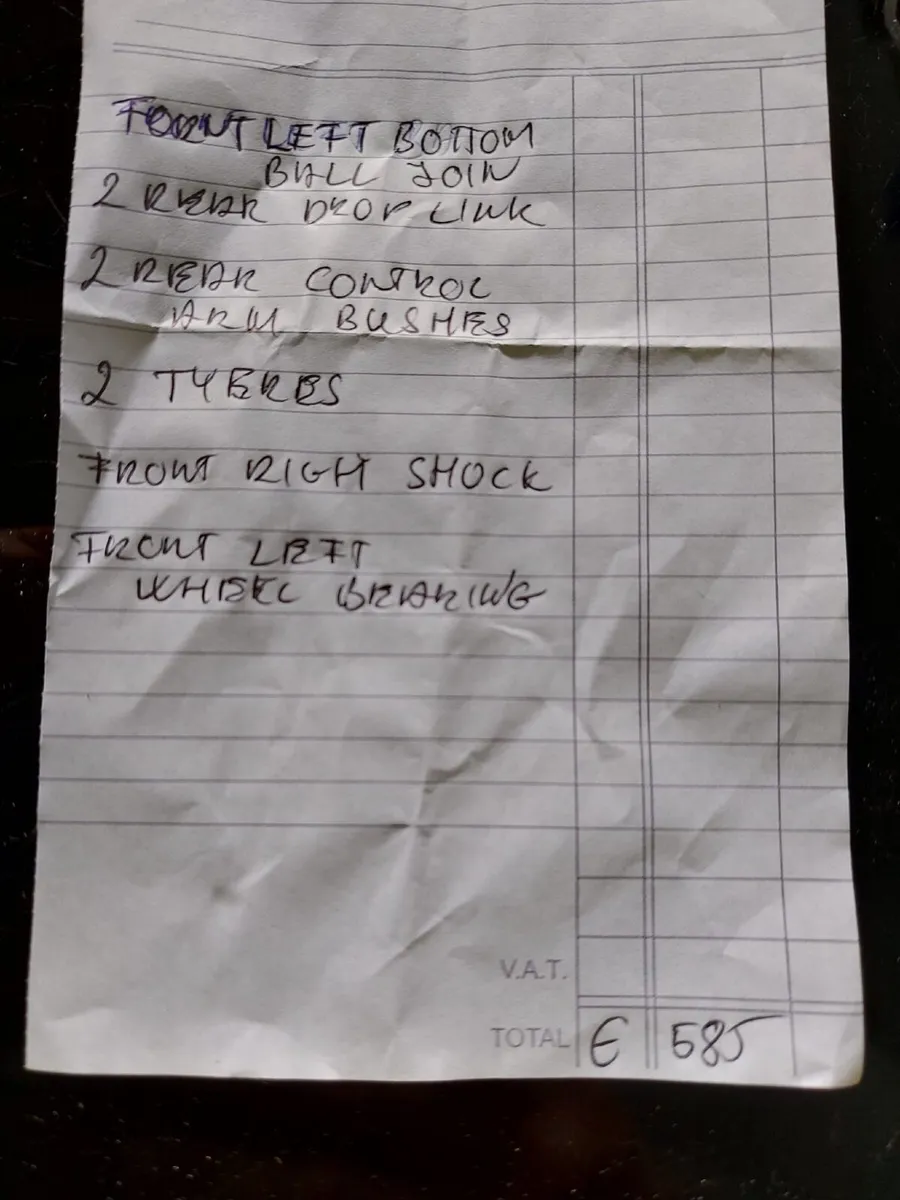 FRONT LEFT BOTTOM
BALL JOIN
2 REAR DROP LINK
2 REAR CONTROL
ARM BUSHES
2 TYERES
FRONT RIGHT SHOCK
FRONT LEFT
WHEEL BEARING
V.A.T.
TOTAL € 585